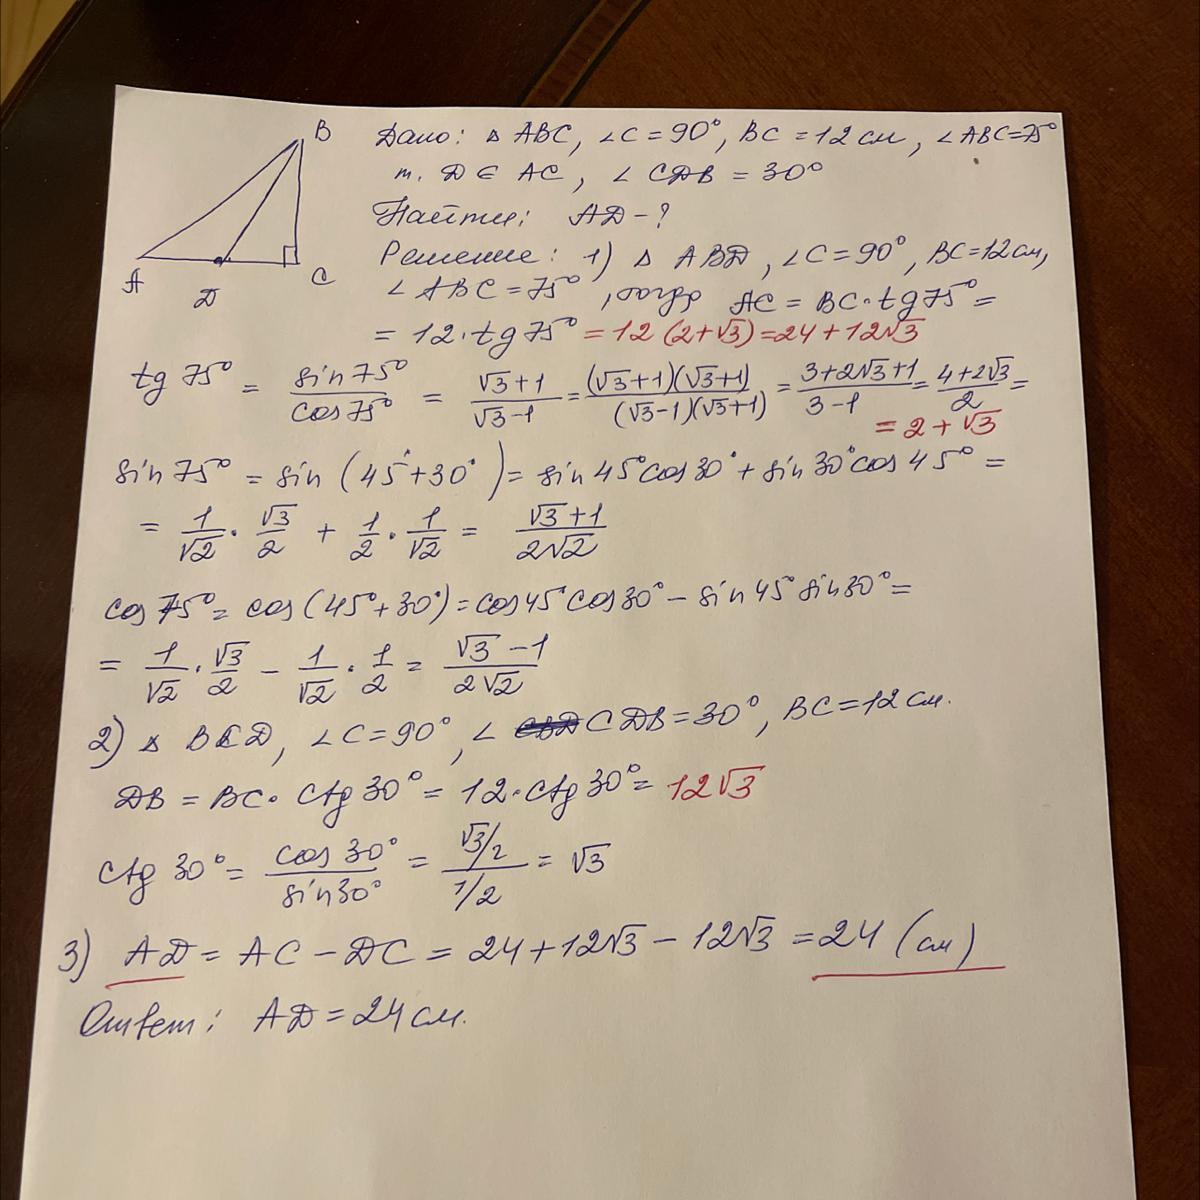 B
A
D
C
Дано: △ ABC, ∠C = 90°, BC = 12 см, ∠ABC=75°
т. D ∈ AC, ∠ CDB = 30°
Найти: AD - ?
Решение: 1) △ ABD, ∠C = 90°, BC=12см,
∠ ABC = 75°, тогда AC = BC · tg75° =
= 12 · tg 75° = 12 (2+√3) = 24 + 12√3
tg 75° = sin75°/cos75° = (√3+1)/(√3-1) = (√3+1)(√3+1)/(√3-1)(√3+1) = (3+2√3+1)/(3-1) = (4+2√3)/2 =
= 2 + √3
sin 75° = sin (45°+30°) = sin 45° cos 30° + sin 30° cos 45° =
= 1/√2 · √3/2 + 1/2 · 1/√2 = (√3+1)/(2√2)
cos 75° = cos(45°+30°) = cos45° cos30° - sin45° sin30° =
= 1/√2 · √3/2 - 1/√2 · 1/2 = (√3-1)/(2√2)
2) △ BCD, ∠C = 90°, ∠ CDB = 30°, BC = 12 см.
DB = BC · ctg 30° = 12 · ctg 30° = 12√3
ctg 30° = cos 30°/sin 30° = (√3/2)/(1/2) = √3
3) AD = AC - DC = 24 + 12√3 - 12√3 = 24 (см)
Ответ: AD = 24 см.